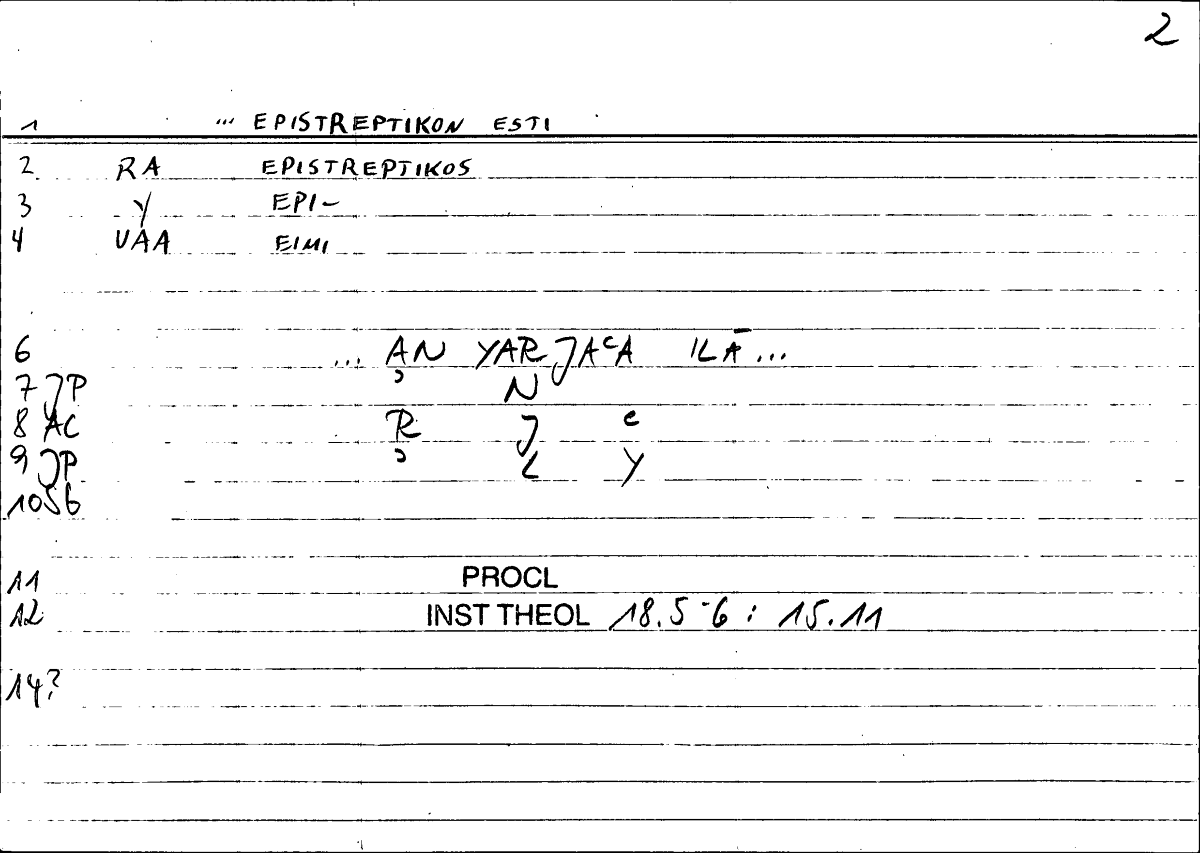 2
1 ... EPISTREPTIKON ESTI
2 RA EPISTREPTIKOS
3 Y EPI-
4 UAA EIMI
6 ... AN YARJAcA ILĀ ...
7 JP ɔ N
8 AC R J c
9 JP ɔ L Y
10 SB
11 PROCL
12 INST THEOL 18.5-6 : 15.11
14?